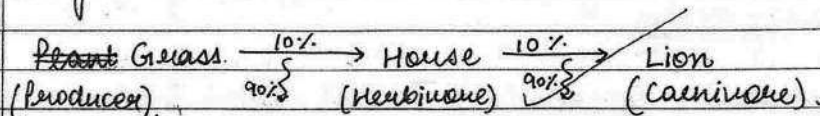 Grass 10% → House 10% → Lion
(Producer) 90% (Herbivore) 90% (Carnivore).